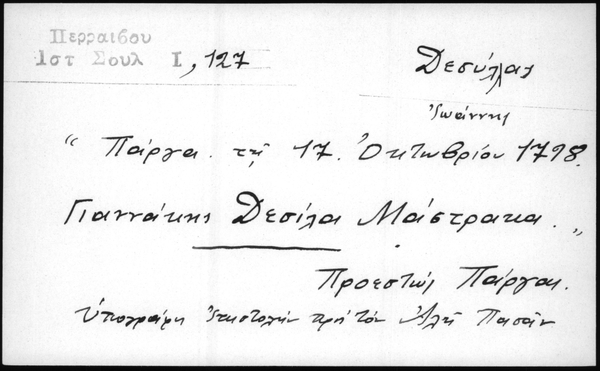 Περραιβου
Ιστ Σουλ Ι, 127
Δεσύλλας
Ἰωάννης
“ Πάργα. τῇ 17. Ὀκτωβρίου 1798.
Γιαννάκης Δεσίλα Μάστρακα. „
Προεστώς Πάργας.
Ὑπογράφει ἐπιστολήν πρός τόν Ἀλῆ Πασᾶν